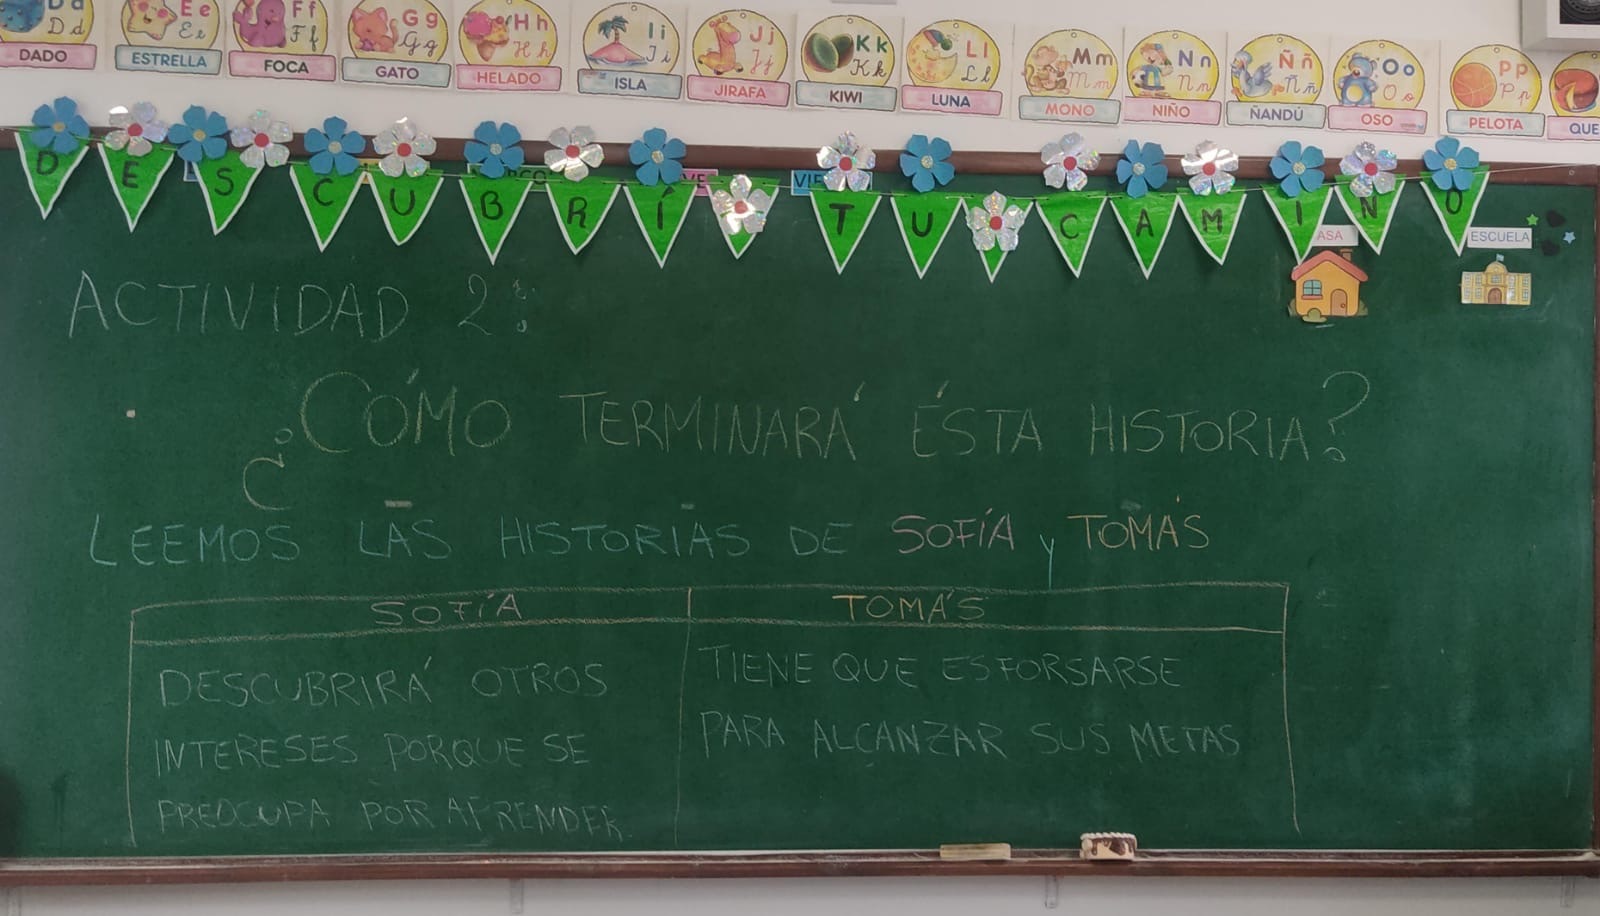 Dd Dd DADO
Ee Ee ESTRELLA
Ff Ff FOCA
Gg Gg GATO
Hh Hh HELADO
Ii Ii ISLA
Jj Jj JIRAFA
Kk Kk KIWI
Ll Ll LUNA
Mm Mm MONO
Nn Nn NIÑO
Ññ Ññ ÑANDÚ
Oo Oo OSO
Pp Pp PELOTA
QUE
DESCUBRÍ TU CAMINO
VIE
ASA
ESCUELA
ACTIVIDAD 2:
¿CÓMO TERMINARÁ ÉSTA HISTORIA?
LEEMOS LAS HISTORIAS DE SOFÍA y TOMÁS
SOFÍA
DESCUBRIRÁ OTROS
INTERESES PORQUE SE
PREOCUPA POR APRENDER
TOMÁS
TIENE QUE ESFORSARSE
PARA ALCANZAR SUS METAS